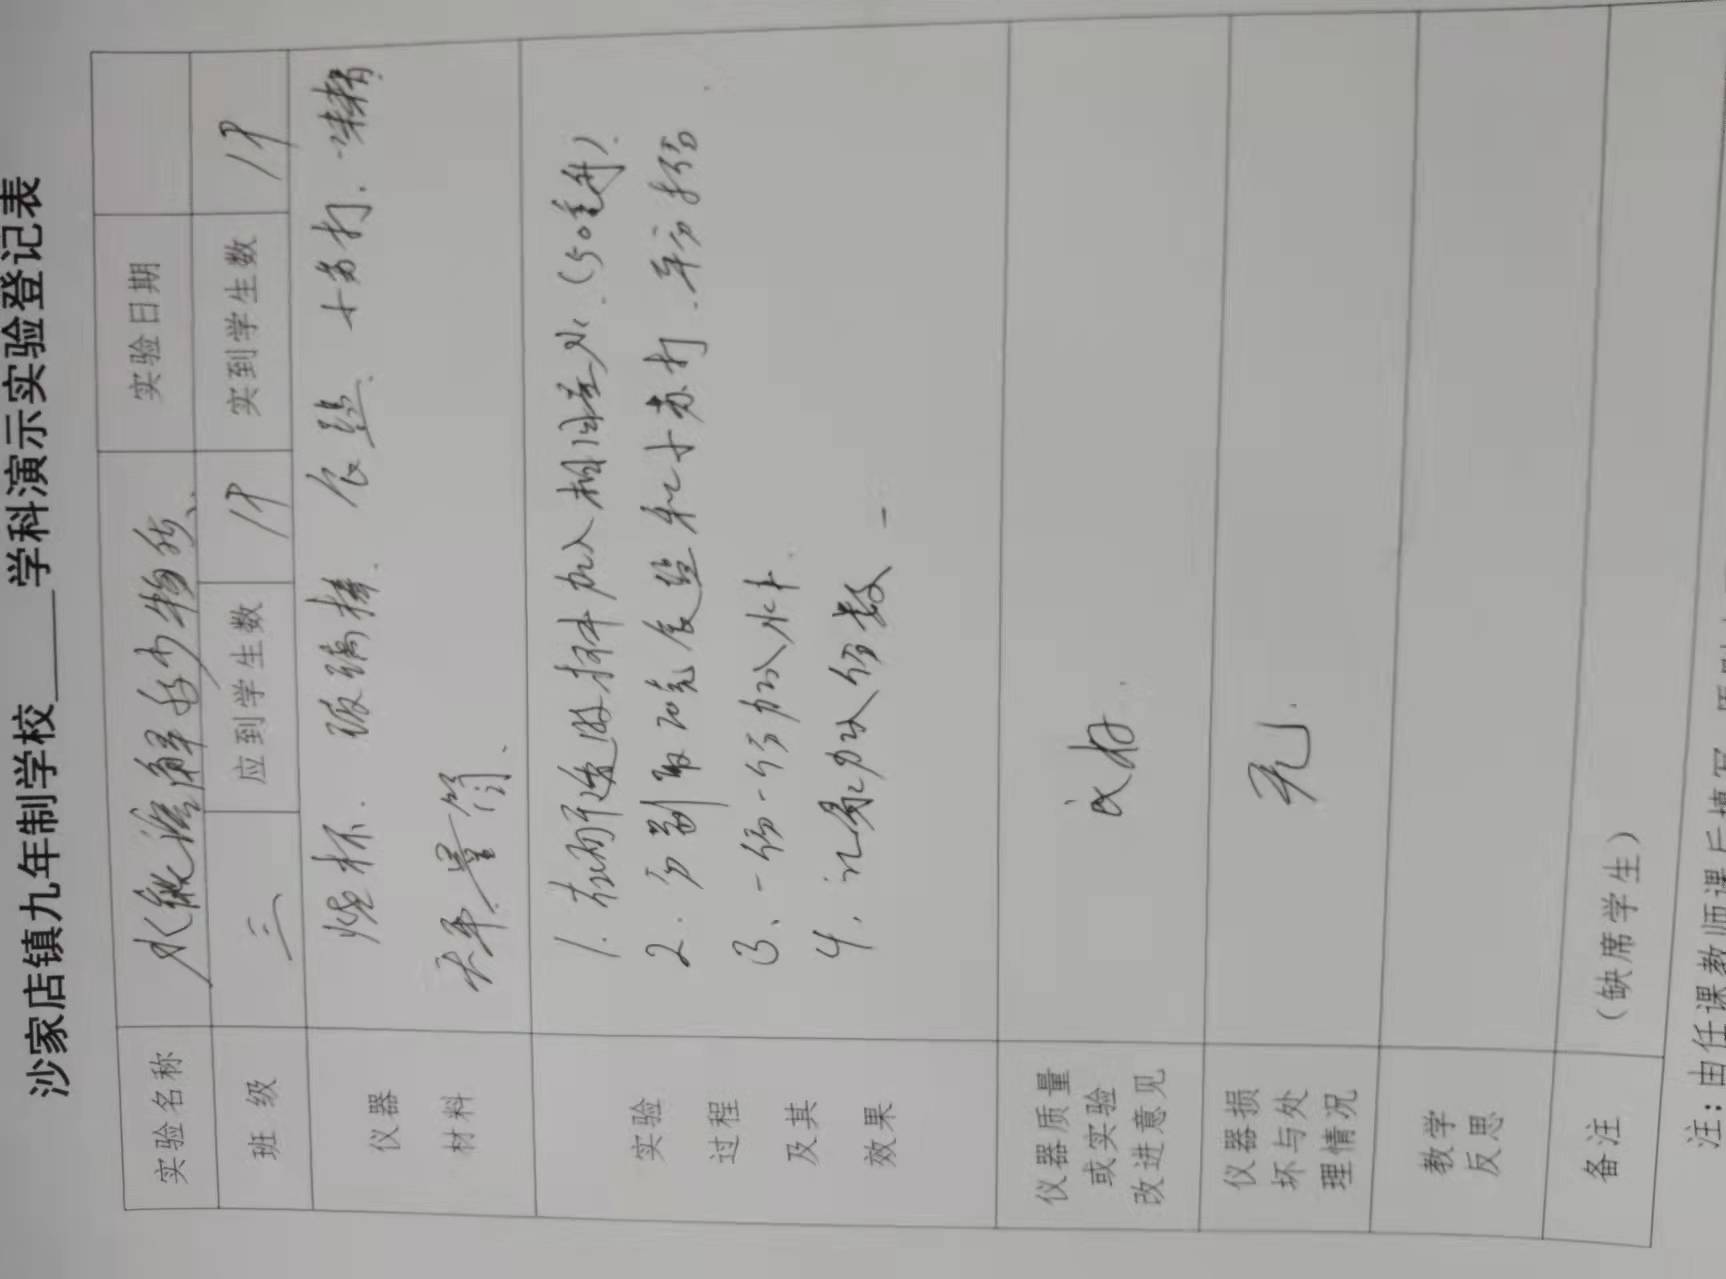 沙家店镇九年制学校____学科演示实验登记表
实验名称 水能溶解多少物质 实验日期
班级 三 应到学生数 18 实到学生数 18
仪器材料 烧杯、玻璃棒、食盐、小苏打、
天平、量筒、
实验过程及其效果 1. 在两个透明杯中加入相同量水(50毫升).
2. 分别取 食盐和小苏打、平分 份
3、一份一份加入水中.
4. 记录加入份数
仪器质量或实验改进意见 良好.
仪器损坏与处理情况 无.
教学反思
备注 (缺席学生)
注:由任课教师课后填写